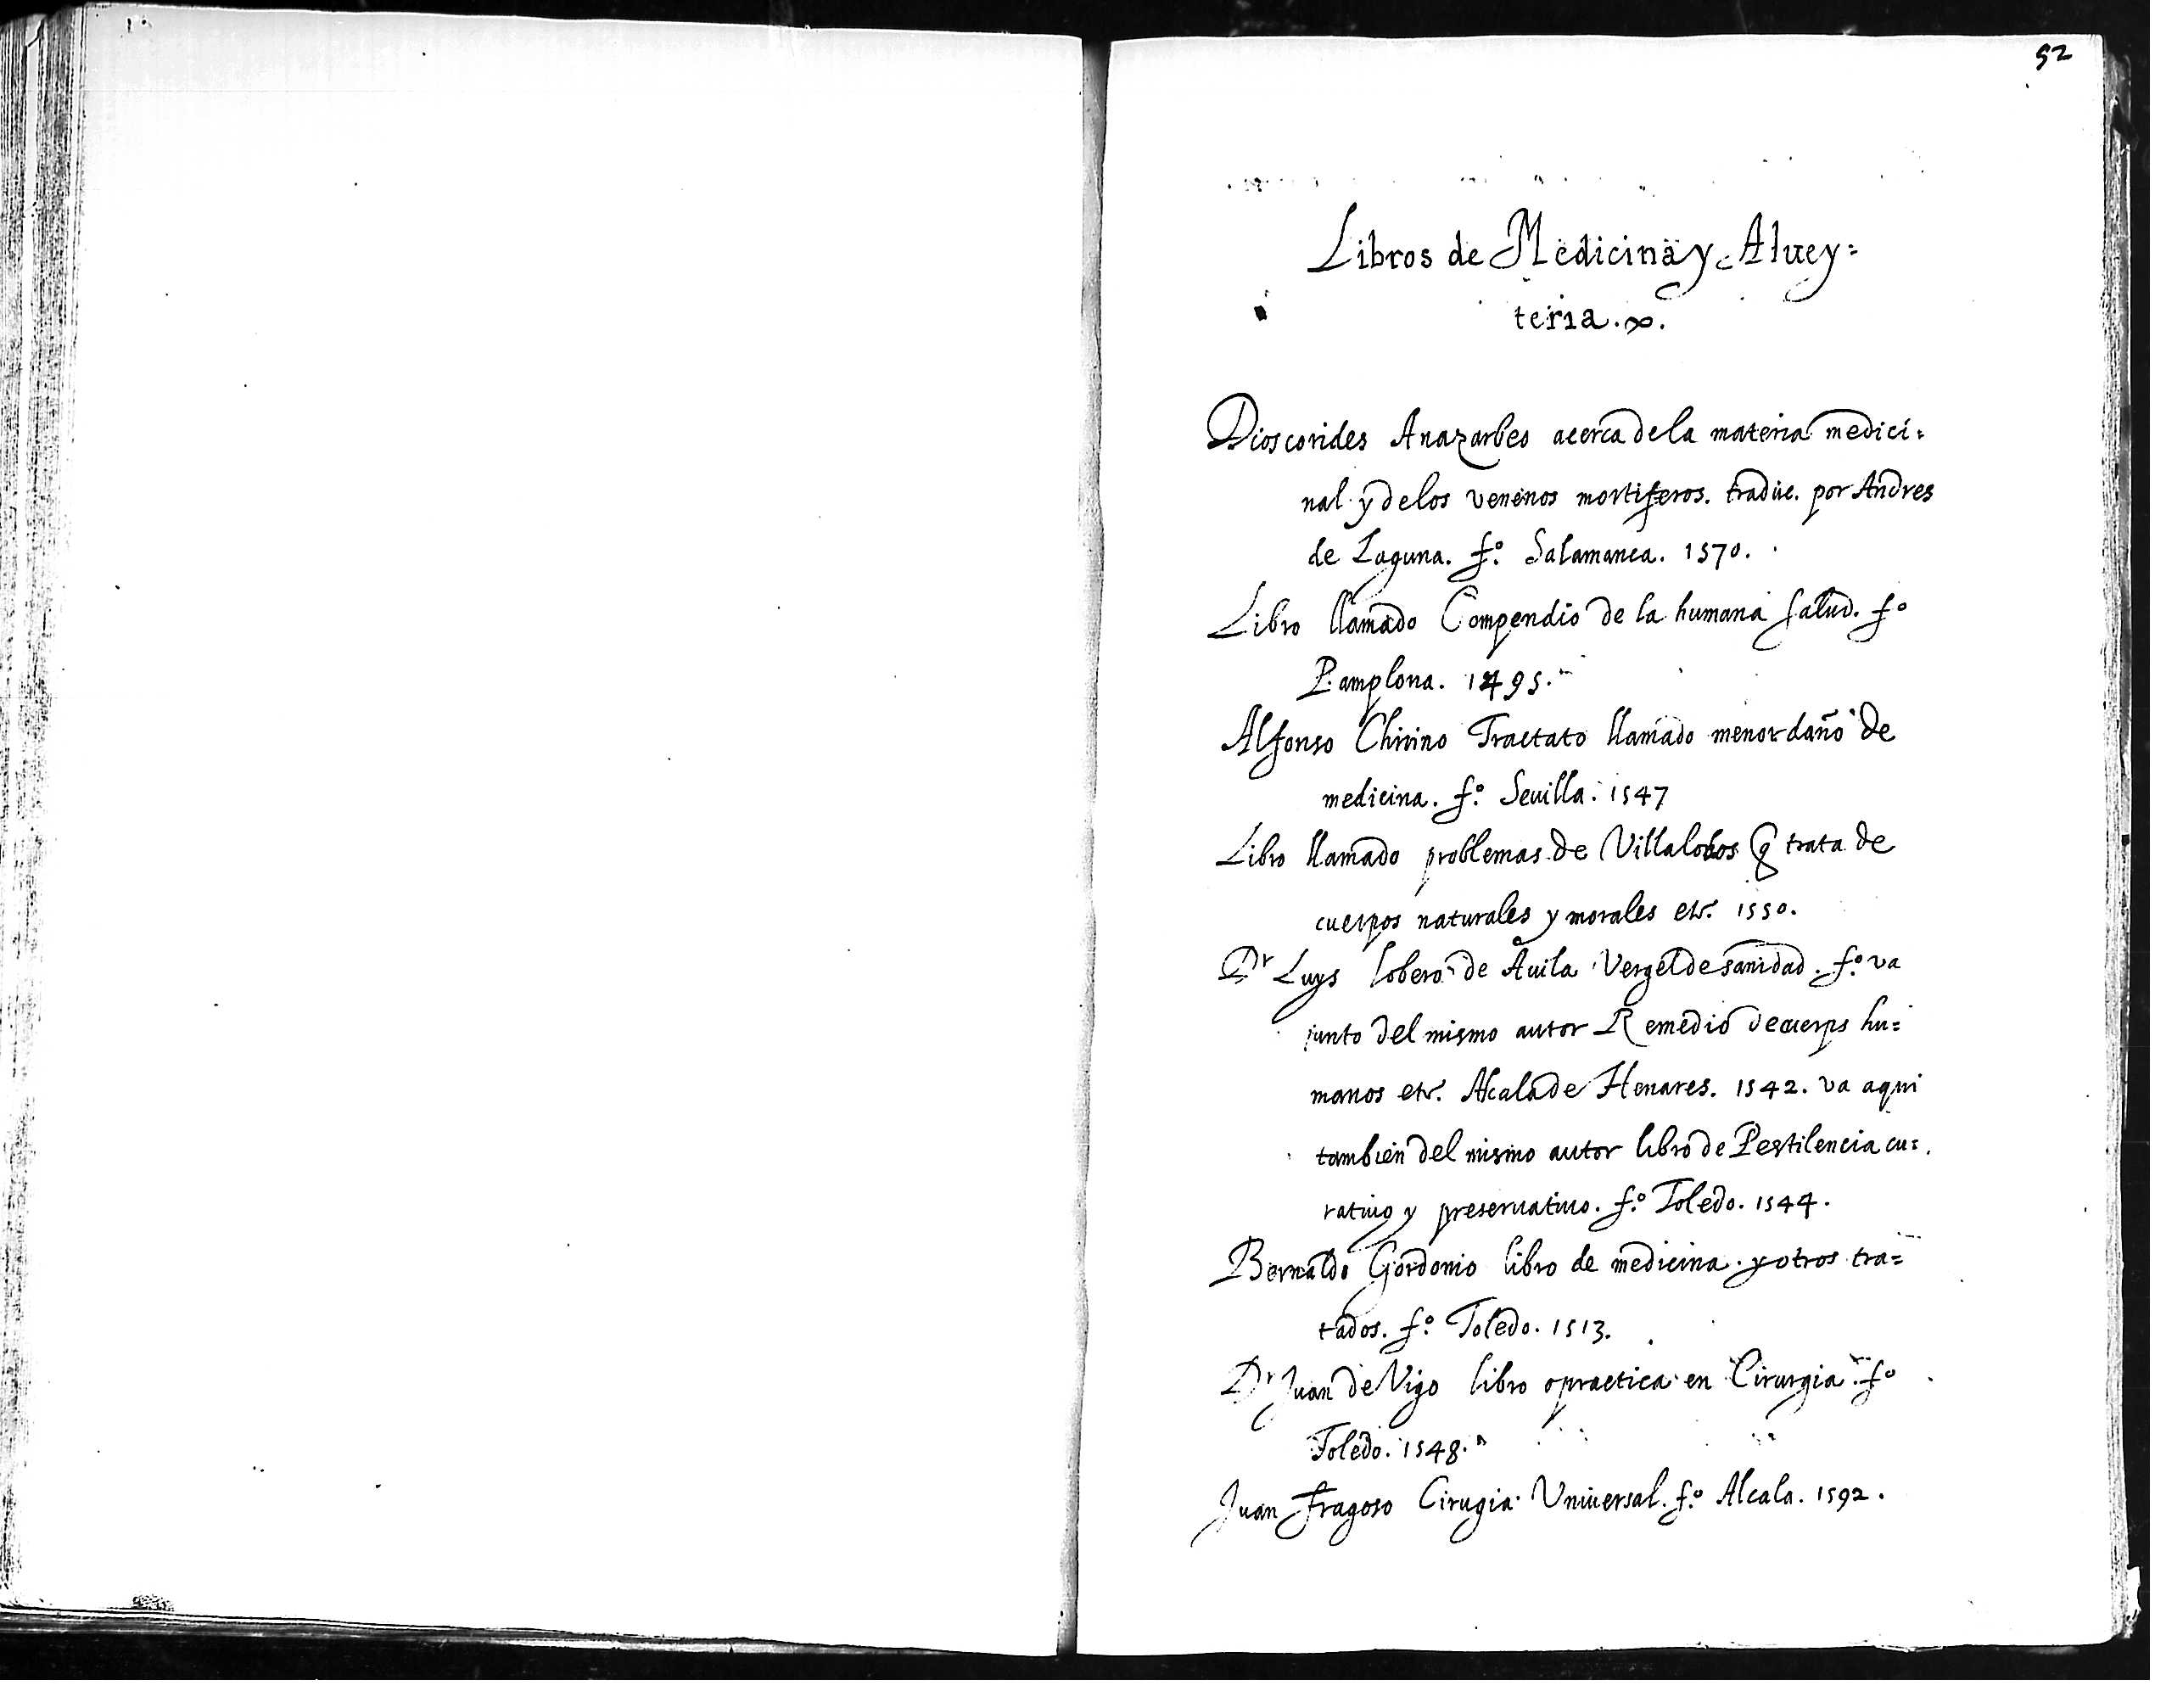 52
Libros de Medicina y Aluey=
teria.
Dioscorides Anazarbeo acerca de la materia medici=
nal y de los venenos mortiferos. traduc. por Andres
de Laguna. fº. Salamanca. 1570.
Libro llamado Compendio de la humana salud. fº
Pamplona. 1495.
Alfonso Chirino Tractato llamado menor daño de
medicina. fº. Seuilla. 1547
Libro llamado problemas de Villalobos q̃ trata de
cuerpos naturales y morales etc. 1550.
Dr Luys lobero de Auila Vergel de sanidad. fº. va
junto del mismo autor Remedio de cuerps hu=
manos etc. Alcala de Henares. 1542. va aqui
tambien del mismo autor libro de Pestilencia cu=
ratiuo y preseruatiuo. fº. Toledo. 1544.
Bernaldo Gordonio libro de medicina. y otros tra=
tados. fº. Toledo. 1513.
Dr Juan de Vigo libro o practica en Cirurgia. fº
Toledo. 1548.
Juan Fragoso Cirugia Uniuersal. fº. Alcala. 1592.